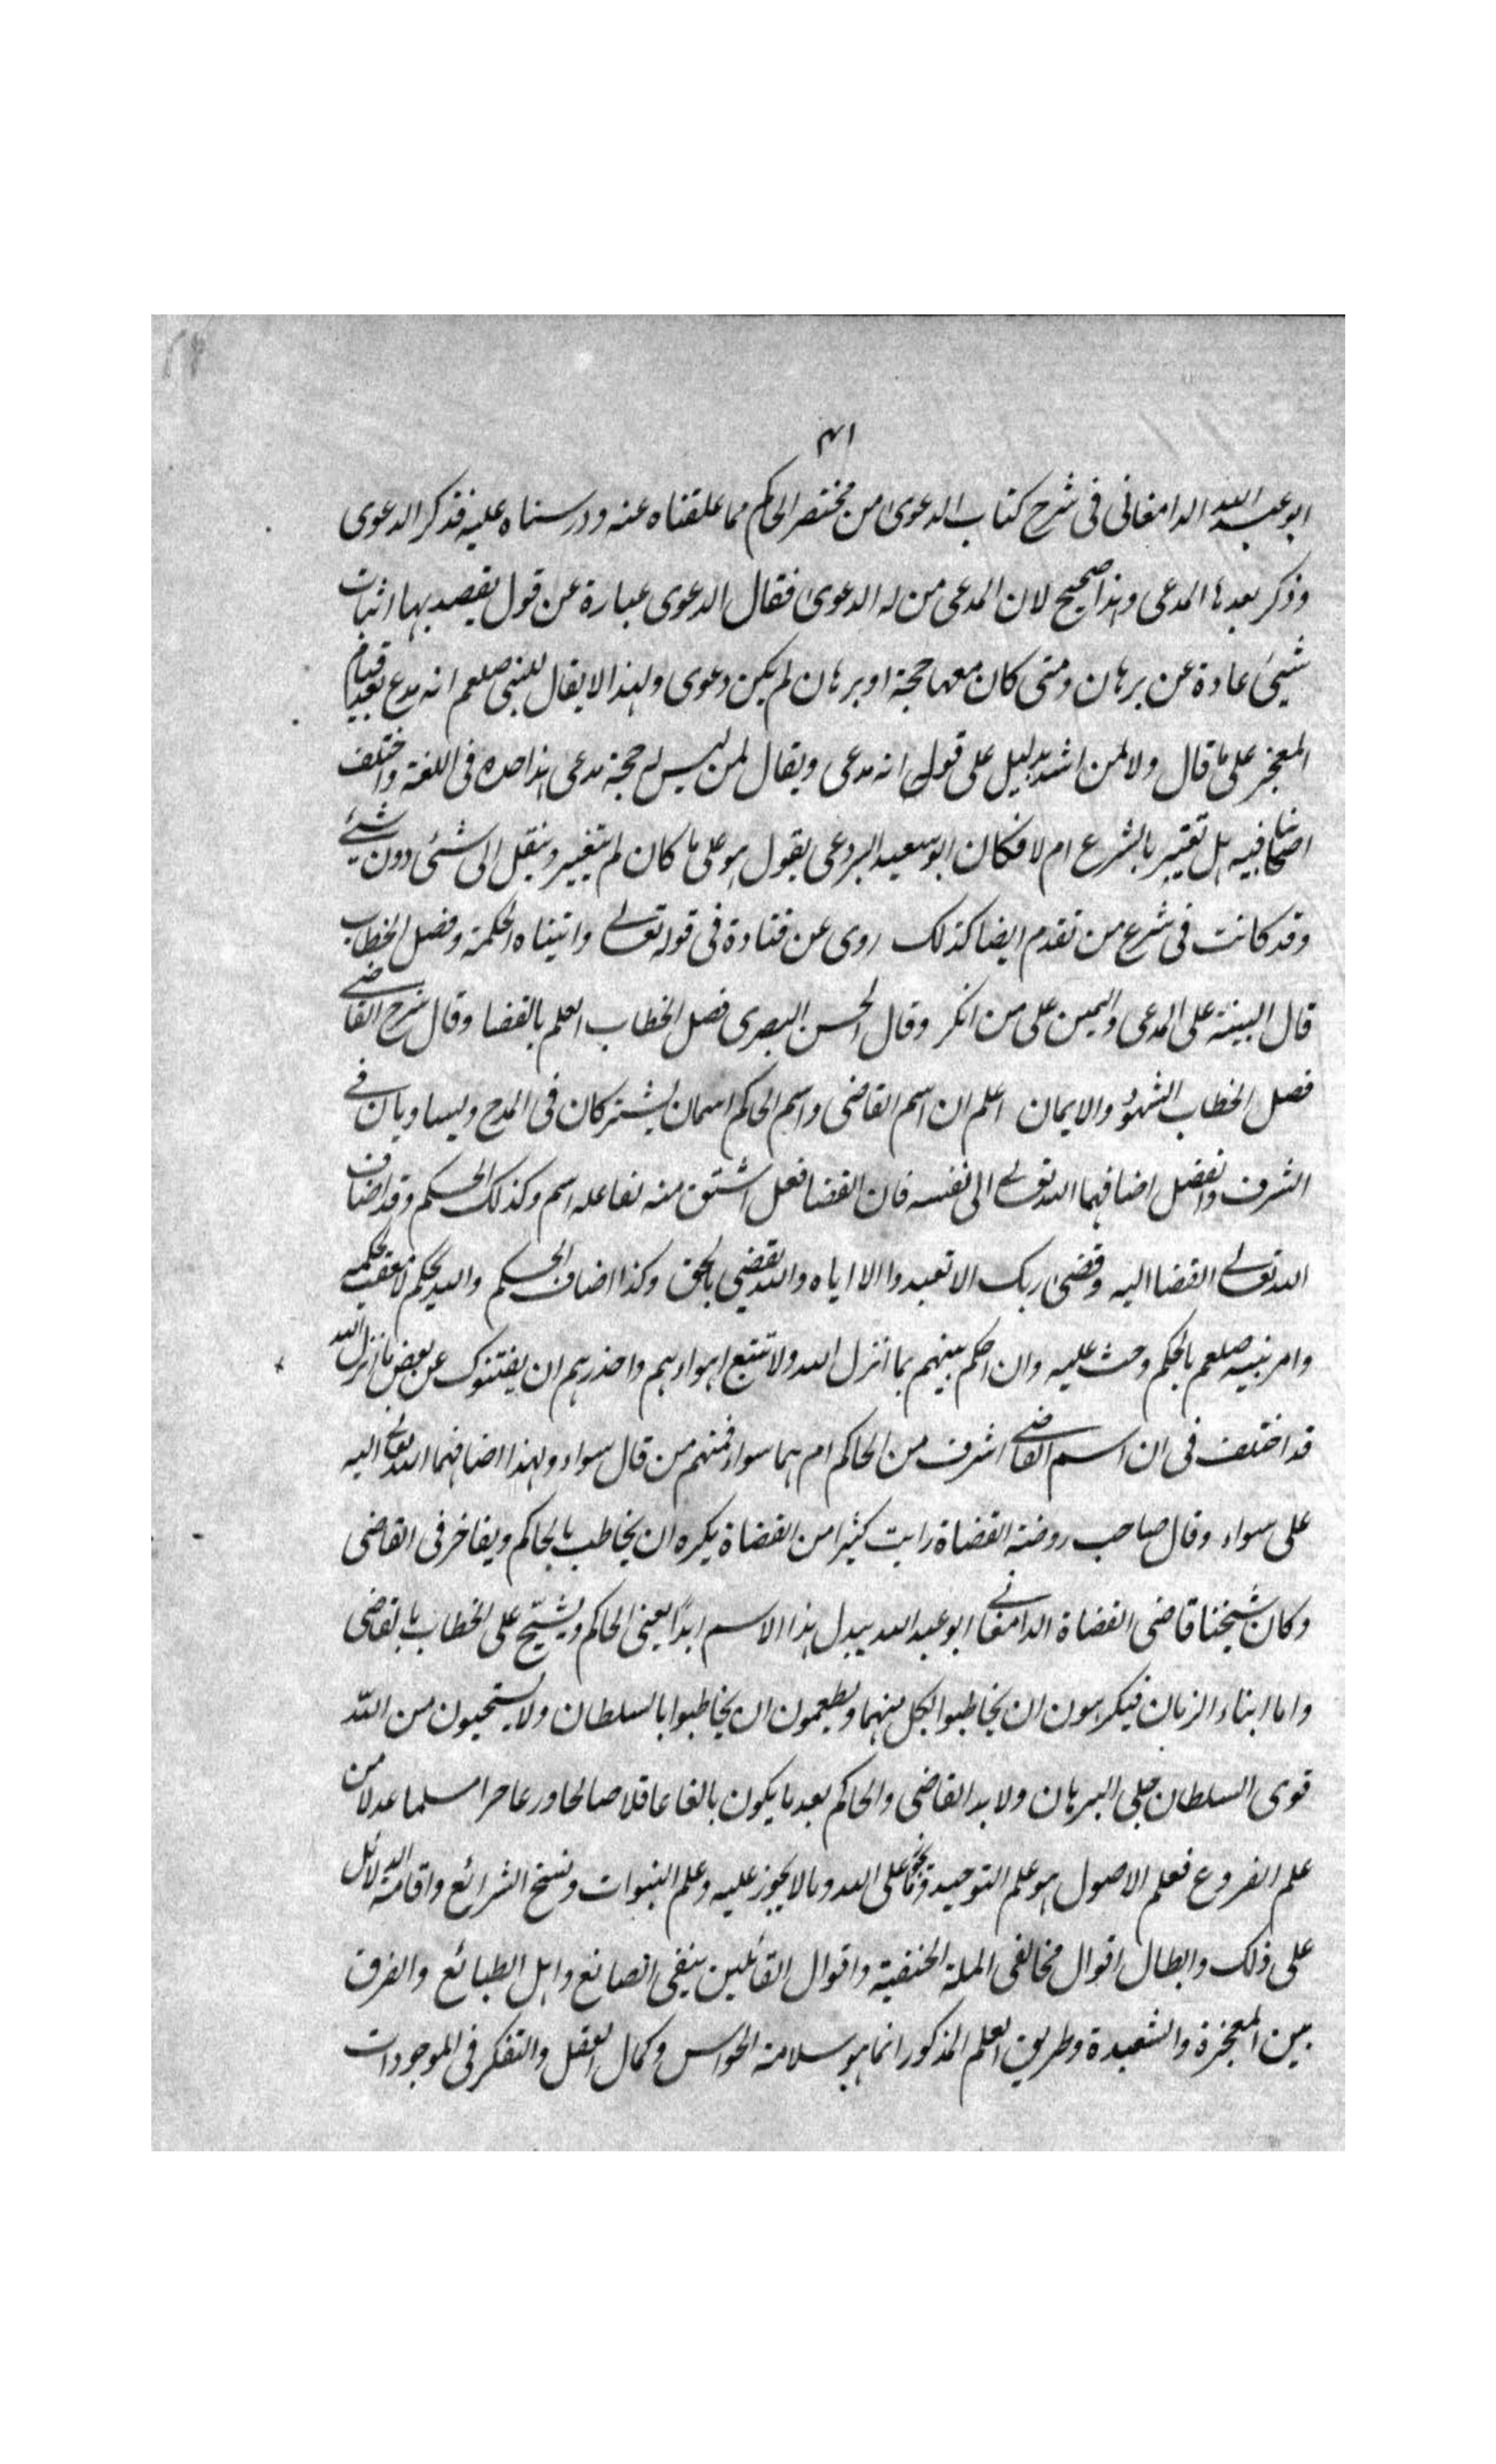 ابو عبد الله الدامغانى فى شرح كتاب الدعوى من مختصر الحاكم مما علقناه عنه ودرسناه عليه فذكر الدعوى
وذكر بعدها المدعى وهذا صحيح لان المدعى من له الدعوى فقال الدعوى عبارة عن قول يقصد بها اثبات
شيئ عادة عن برهان ومتى كان معها حجة او برهان لم يكن دعوى ولهذا لا يقال للنبى صلعم انه مدع بعد قيام
المعجز على ما قال ولا لمن اشد بدليل على قوله انه مدعى ويقال لمن ليس له حجة مدعى هذا حده فى اللغة واختلف
اصحابنا فيه هل تغير بالشرع ام لا فكان ابو سعيد البردعى يقول هو على ما كان لم يتغير وينقل الى شئى دون شيئ
وقد كانت فى شرع من تقدم ايضا كذلك روى عن قتادة فى قوله تعالى واتيناه الحكمة وفصل الخطاب
قال البينة على المدعى واليمين على من انكر وقال الحسن البصرى فصل الخطاب العلم بالقضا وقال شرح القاضى
فصل الخطاب الشهود والايمان اعلم ان اسم القاضى واسم الحاكم اسمان يشتركان فى المدح ويساويان فى
الشرف والفضل اضافهما الله تعالى الى نفسه فان القضا فعل اشتق منه لفاعله اسم وكذلك الحكم وقد اضاف
الله تعالى القضا اليه وقضى ربك الا تعبدوا الا اياه والله يقضى بالحق وكذا اضاف الحكم والله يحكم لا معقب لحكمه
وامر نبيه صلعم بالحكم وحث عليه وان احكم بينهم بما انزل الله ولا تتبع اهواءهم واحذرهم ان يفتنوك عن بعض ما انزل الله
قد اختلف فى ان اسم القاضى اشرف من الحاكم ام هما سواء فمنهم من قال سواء ولهذا اضافهما الله تعالى اليه
على سواء وقال صاحب روضة القضاة رايت كثيرا من القضاة يكره ان يخاطب بالحاكم ويفاخر فى القاضى
وكان شيخنا قاضى القضاة الدامغانى ابو عبد الله يبدل هذا الاسم ابدًا يعنى الحاكم ويشيّح على الخطاب بالقاضى
واما ابناء الزمان فيكرهون ان يخاطبوا بكل منهما ويطمعون ان يخاطبوا بالسلطان ولا يستحيون من اللّه
قوى السلطان جلى البرهان ولا بد القاضى والحاكم بعد ما يكون بالغا عاقلا صالحا ورعا حرا مسلما عدلا من
علم الفروع فعلم الاصول هو علم التوحيد وما يجوز على الله وما لا يجوز عليه وعلم النبوات ونسخ الشرائع واقامة الدلائل
على ذلك وابطال اقوال مخالفى الملة الحنفية واقوال القائلين بنفى الصانع واهل الطبائع والفرق
بين المعجزة والشعبدة وطريق العلم المذكور انما هو سلامة الحواس وكمال العقل والتفكر فى الموجودات